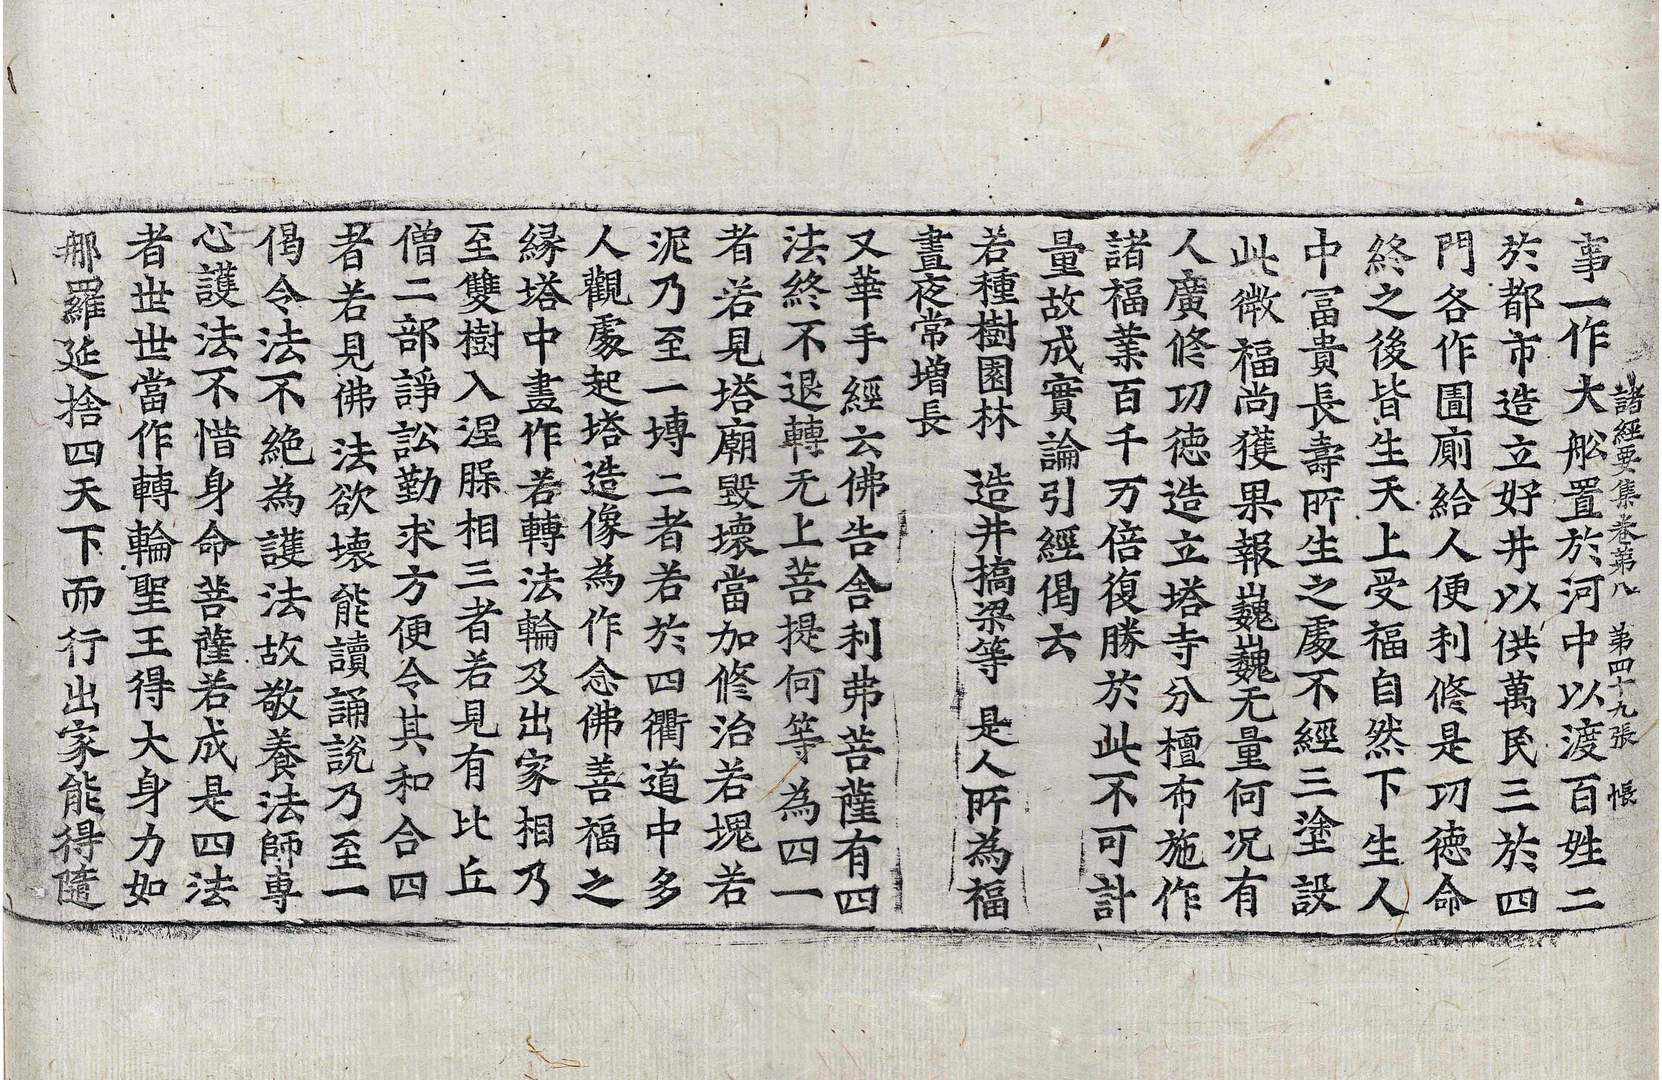 諸經要集卷第八　第四十九張　悵
事一作大舩置於河中以渡百姓二
於都市造立好井以供萬民三於四
門各作圊廁給人便利修是功德命
終之後皆生天上受福自然下生人
中冨貴長壽所生之處不經三塗設
此微福尚獲果報巍巍无量何況有
人廣修功德造立塔寺分檀布施作
諸福業百千万倍復勝於此不可計
量故成實論引經偈云
若種樹園林　造井搞梁等　是人所為福
晝夜常增長
又華手經云佛告舍利弗菩薩有四
法終不退轉无上菩提何等為四一
者若見塔廟毀壞當加修治若塊若
泥乃至一塼二者若於四衢道中多
人觀處起塔造像為作念佛善福之
緣塔中畫作若轉法輪及出家相乃
至雙樹入涅䏶相三者若見有比丘
僧二部諍訟勤求方便令其和合四
者若見佛法欲壞能讀誦說乃至一
偈令法不絶為護法故敬養法師專
心護法不惜身命菩薩若成是四法
者世世當作轉輪聖王得大身力如
那羅延捨四天下而行出家能得隨